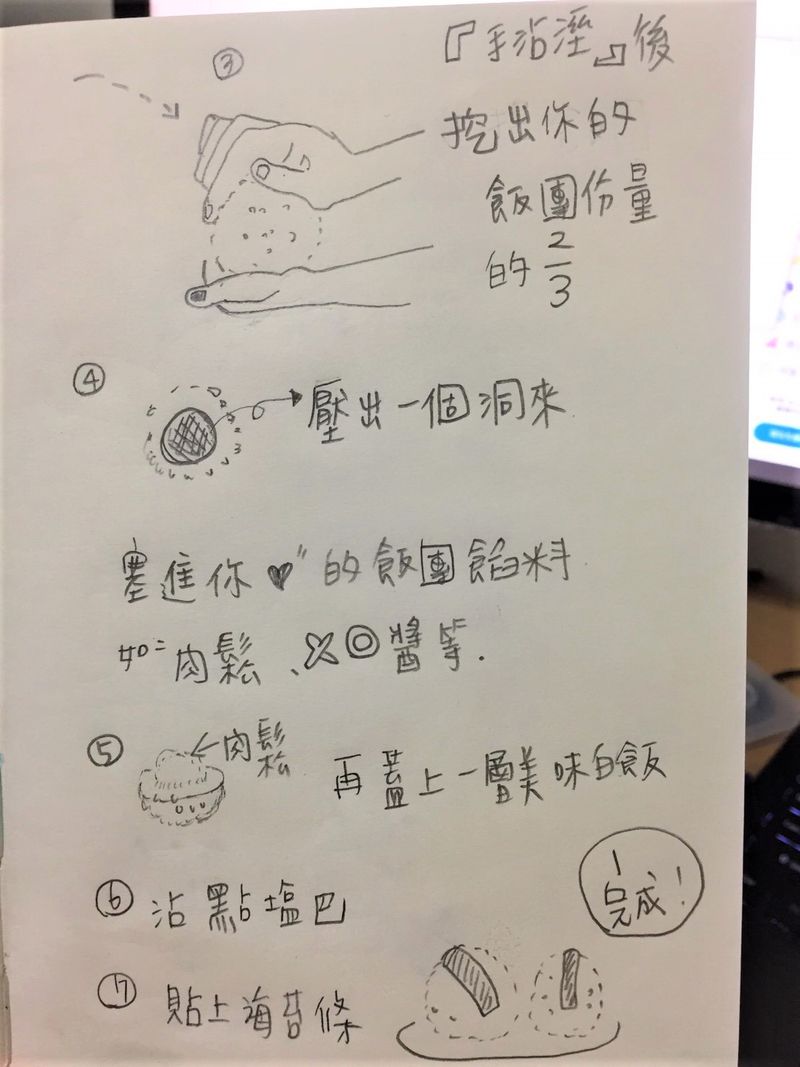 ③
『手沾溼』後
挖出你的
飯團份量
的 2/3
④
壓出一個洞來
塞進你♥的飯團餡料
如=肉鬆、X◎醬等.
⑤
←肉鬆
再蓋上一層美味白飯
⑥ 沾點塩巴
完成!
⑦ 貼上海苔條